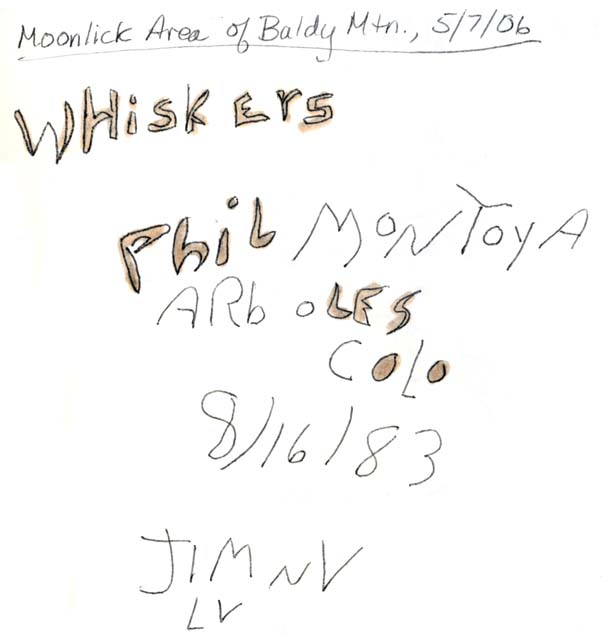 Moonlick Area of Baldy Mtn., 5/7/06
WHiSKErS
PhiL MONToyA
ARboLES
COLO
8/16/83
JIM NV
LV